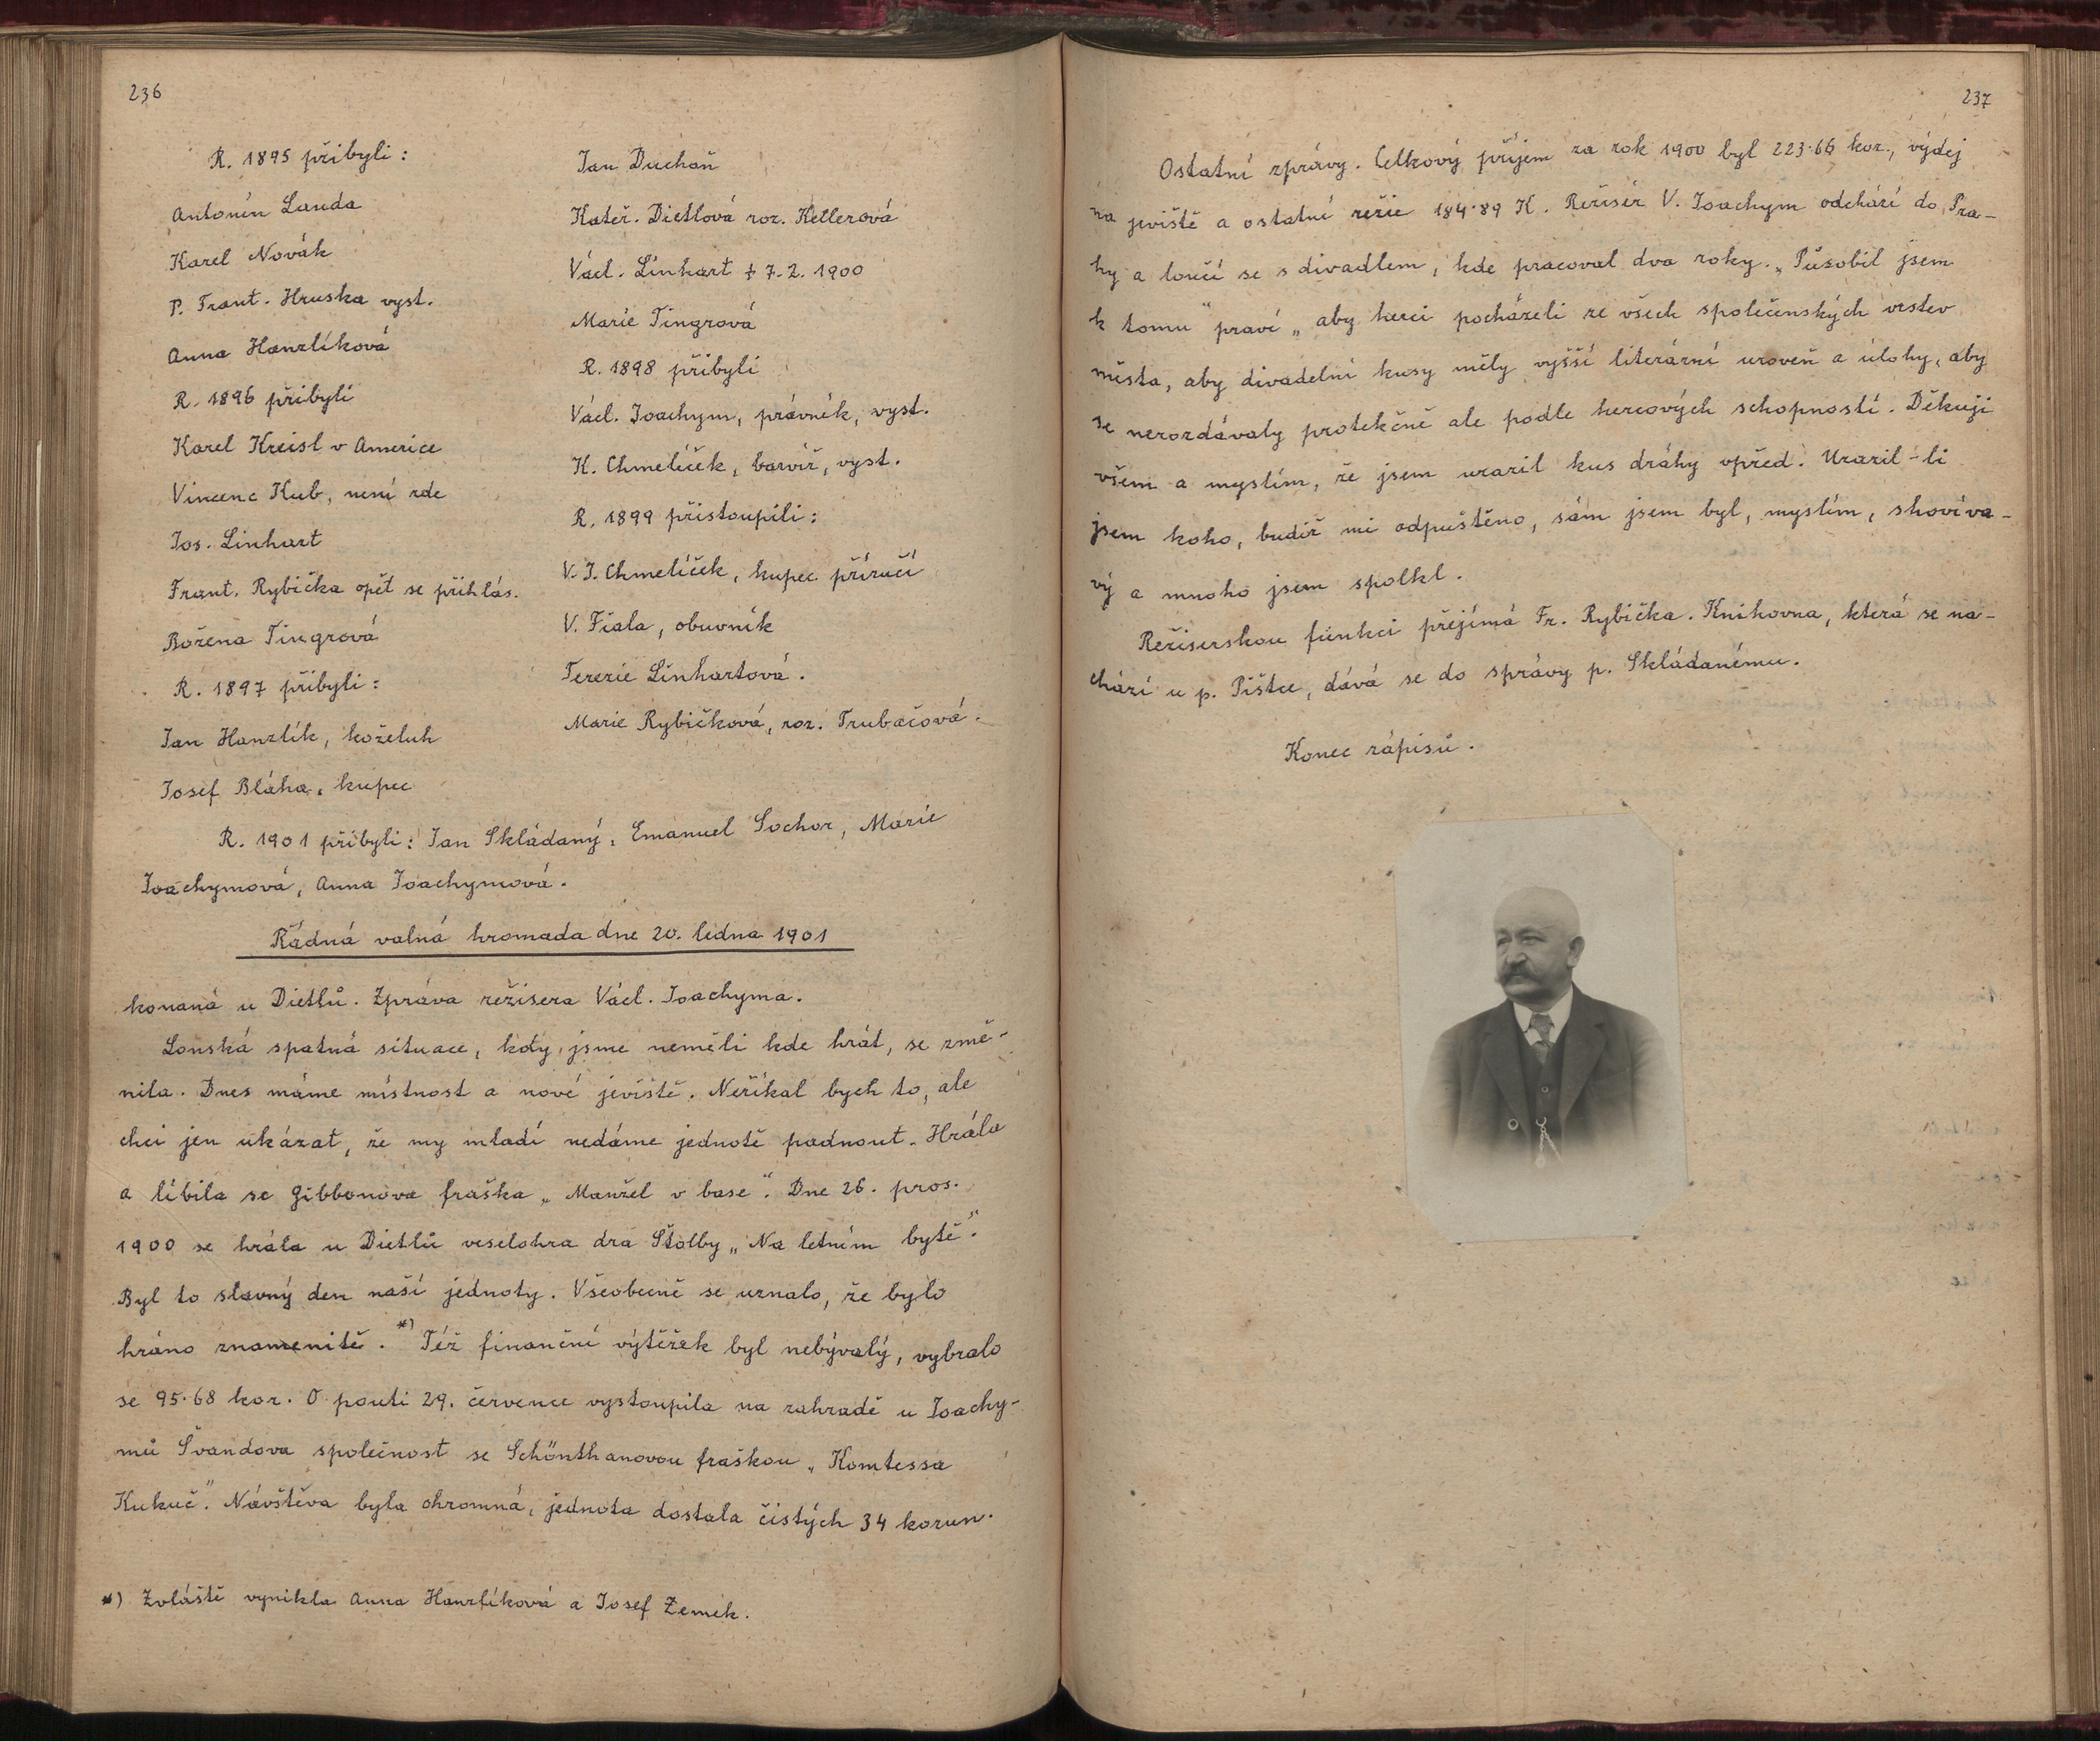 236
R. 1895 přibyli :
Antonín Landa
Karel Novák
P. Frant. Hruska vyst.
Anna Hanzlíková
R. 1896 přibyli
Karel Kreisl v Americe
Vincenc Kub, není zde
Jos. Linhart
Frant. Rybička opět se přihlás.
Božena Tingrová
R. 1897 přibyli :
Jan Hanzlík, koželuh
Josef Bláha, kupec
Jan Duchoň
Kateř. Dietlová roz. Kellerová
Václ. Linhart † 7. 2. 1900
Marie Tingrová
R. 1898 přibyli
Václ. Joachym, právník, vyst.
K. Chmelíček, barvíř, vyst.
R. 1899 přistoupili :
V. J. Chmelíček, kupec příručí
V. Fiala, obuvník
Terezie Linhartová.
Marie Rybičková, roz. Trubačová.
R. 1901 přibyli : Jan Skládaný, Emanuel Sochor, Marie
Joachymová, Anna Joachymová.
Řádná valná hromada dne 20. ledna 1901
konaná u Dietlů. Zpráva režisera Václ. Joachyma.
Lonská spatná situace, kdy jsme neměli kde hrát, se změ-
nila. Dnes máme místnost a nové jeviště. Neříkal bych to, ale
chci jen ukázat, že my mladí nedáme jednotě padnout. Hrála
a líbila se Gibbonova fraška „Manžel v base". Dne 26. pros.
1900 se hrála u Dietlů veselohra dra Štolby „Na letním bytě".
Byl to slavný den naší jednoty. Všeobecně se uznalo, že bylo
hráno znamenitě. *) Též finanční výtěžek byl nebývalý, vybralo
se 95·68 kor. O pouti 29. července vystoupila na zahradě u Joachy-
mů Švandova společnost se Schönthanovou fraškou „Komtessa
Kukuč". Návštěva byla ohromná, jednota dostala čistých 34 korun.
*) Zvláště vynikla Anna Hanzlíková a Josef Zemek.
237
Ostatní zprávy. Celkový příjem za rok 1900 byl 223·66 kor., výdej
na jeviště a ostatní režie 184·89 K. Režisér V. Joachym odchází do Pra-
hy a loučí se s divadlem, kde pracoval dva roky. „Působil jsem
k tomu" praví „aby herci pocházeli ze všech společenských vrstev
města, aby divadelní kusy měly vyšší literární uroveň a úlohy, aby
se nerozdávaly protekčně ale podle hercových schopností. Děkuji
všem a myslím, že jsem urazil kus dráhy vpřed. Urazil-li
jsem koho, budiž mi odpuštěno, sám jsem byl, myslím, shovíva-
vý a mnoho jsem spolkl.
Režiserskou funkci přejímá Fr. Rybička. Knihovna, která se na-
chází u p. Pištce, dává se do správy p. Skládanému.
Konec zápisů.